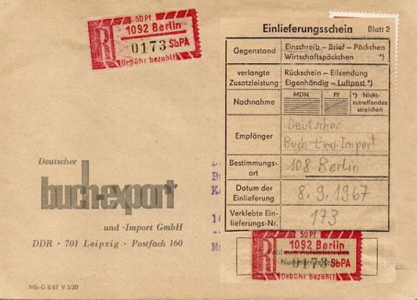 50 Pf
R
1092 Berlin
0173 SbPA
Gebühr bezahlt
Einlieferungsschein
Blatt 2
Gegenstand
Einschreib.- Brief - Päckchen
Wirtschaftspäckchen *)
verlangte
Zusatzleistung
Rückschein - Eilsendung
Eigenhändig - Luftpost *)
Nachnahme
MDN
Pf
*) Nicht-
zutreffendes
streichen
Empfänger
Deutscher
Buch-Exp. Import
Bestimmungs-
ort
108 Berlin
Datum der
Einlieferung
8. 9. 1967
Verklebte Ein-
lieferungs-Nr.
173
Deutscher
buch-export
und -Import GmbH
DDR · 701 Leipzig · Postfach 160
50 Pf
R
1092 Berlin
0173 SbPA
Gebühr bezahlt